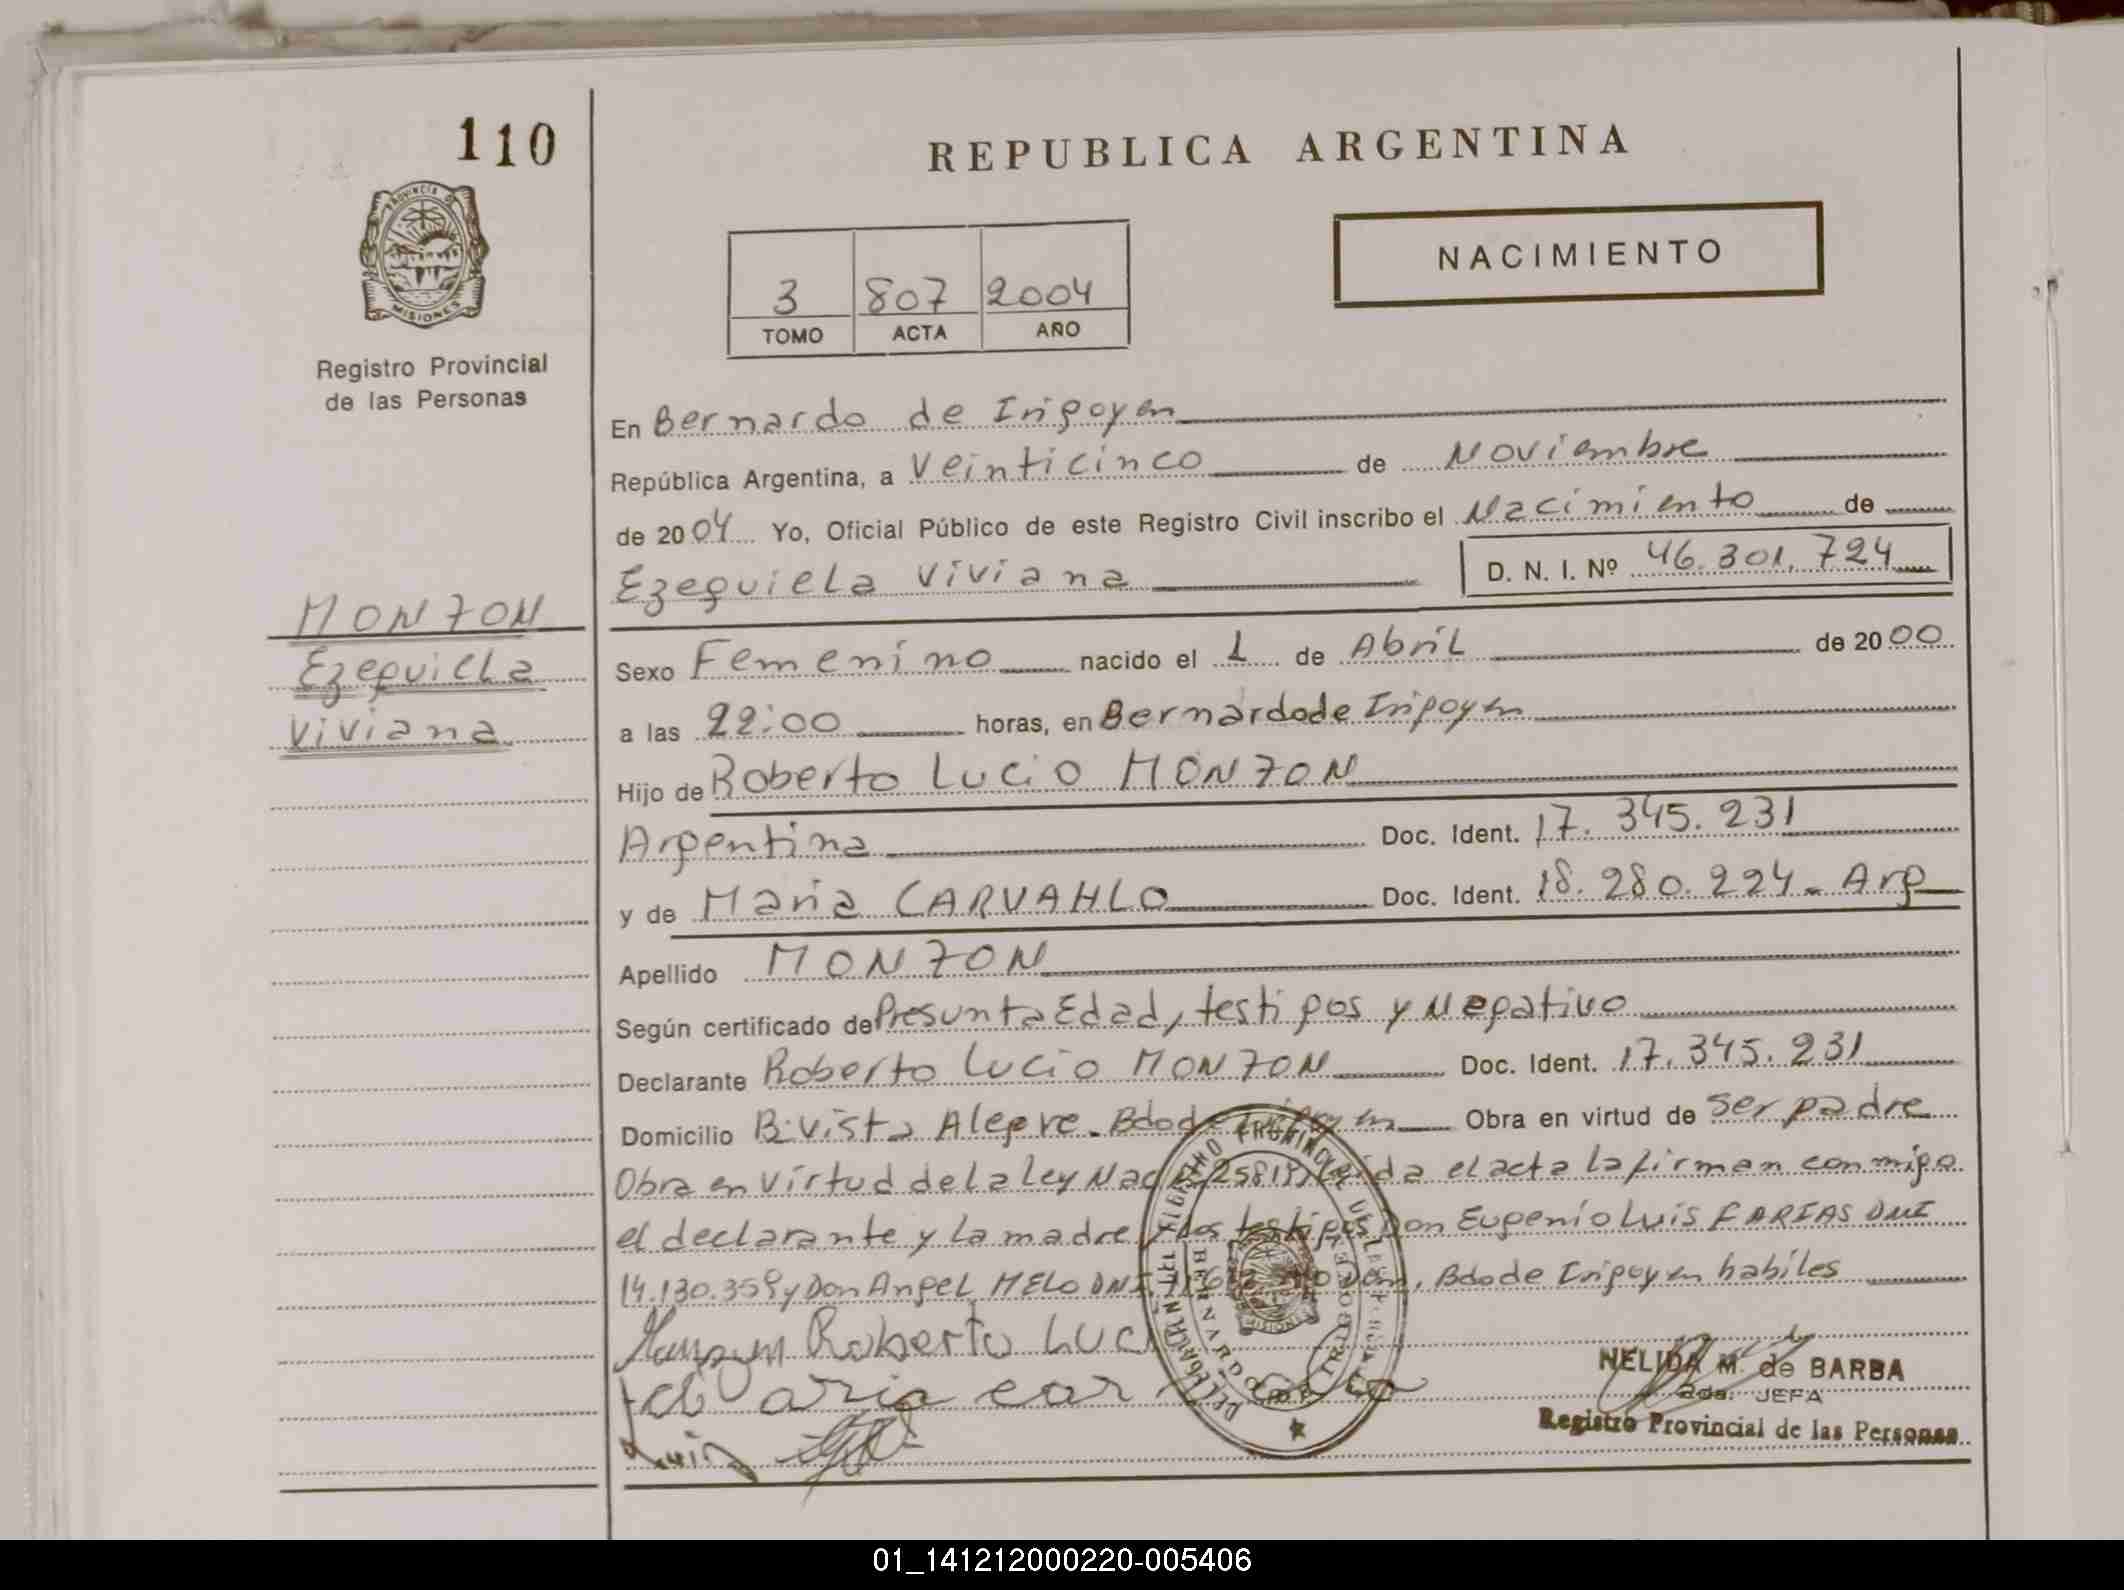 110
REPUBLICA ARGENTINA
PROVINCIA DE
MISIONES
NACIMIENTO
3 807 2004
TOMO ACTA AÑO
Registro Provincial
de las Personas
En Bernardo de Irigoyen
República Argentina, a Veinticinco de Noviembre
de 2004 Yo, Oficial Público de este Registro Civil inscribo el Nacimiento de
Ezequiela Viviana D. N. I. Nº 46.301.724
MONZON
Ezequiela
Viviana
Sexo Femenino nacido el 1 de Abril de 2000
a las 22:00 horas, en Bernardo de Irigoyen
Hijo de Roberto Lucio MONZON
Argentina Doc. Ident. 17.345.231
y de Maria CARVAHLO Doc. Ident. 18.280.224- Arg
Apellido MONZON
Según certificado de Presunta Edad, testigos y Negativo
Declarante Roberto Lucio MONZON Doc. Ident. 17.345.231
Domicilio B. vista Alegre. Bdo de Irigoyen Obra en virtud de ser padre
Obra en virtud de la ley Nac 25819, leída el acta la firman conmigo
el declarante y la madre y los testigos Don Eugenio Luis FARIAS DNI
14.130.359 y Don Angel MELO DNI Dom, Bdo de Irigoyen habiles
Roberto Luci
NELIDA M. de BARBA
2da. JEFA
Registro Provincial de las Personas
REGISTRO PROVINCIAL DE LAS
BERNARDO DE IRIGOYEN
MISIONES
01_141212000220-005406